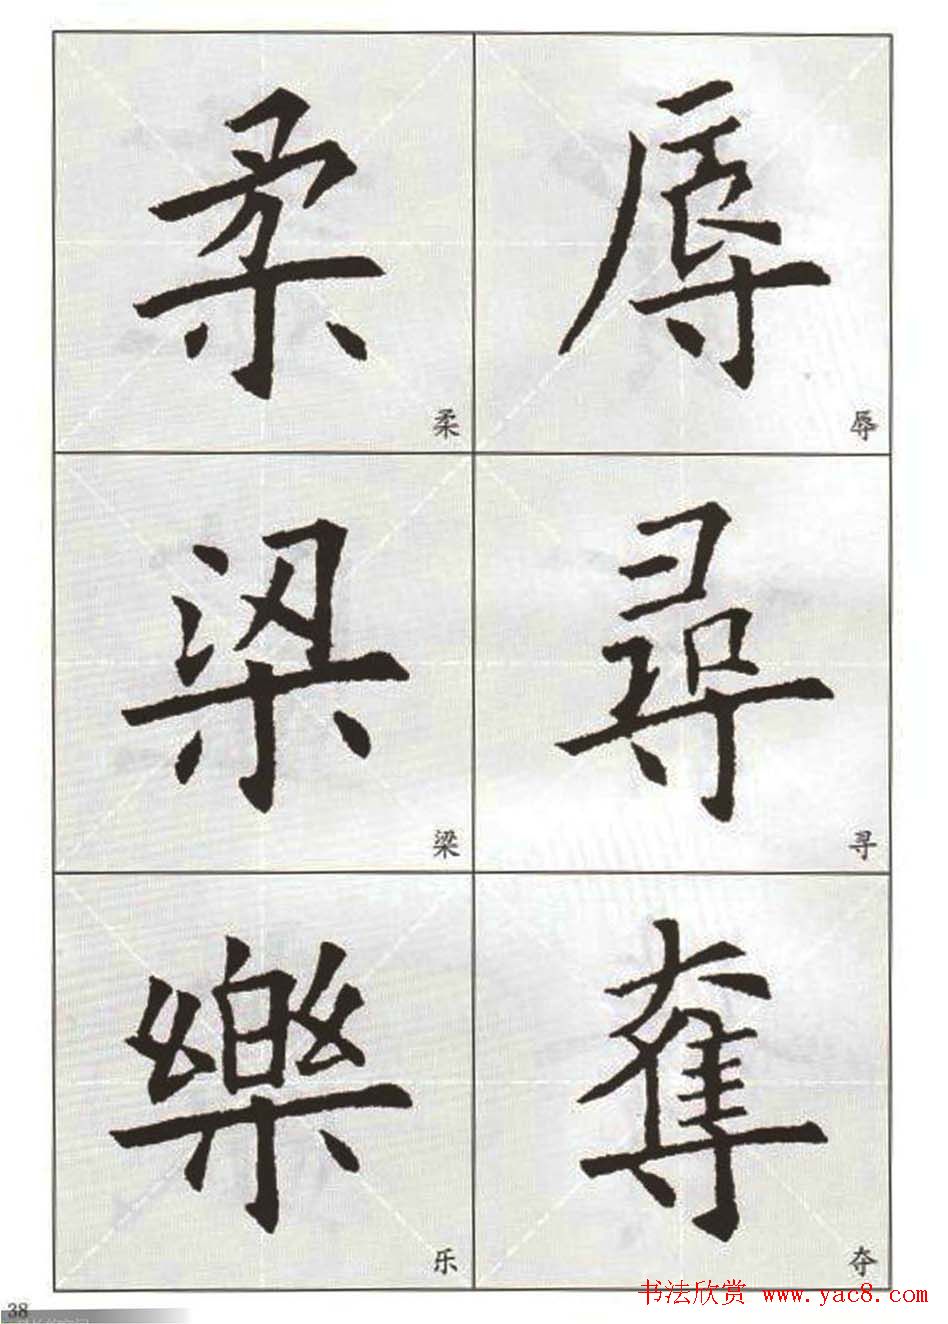 柔 辱
柔 辱
梁 尋
梁 寻
樂 奪
乐 夺
38
书法欣赏 www.yac8.com